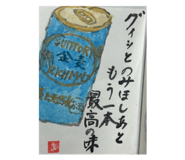 グイッとのみほしあと
もう一本
最高の味
SUNTORY
金麦